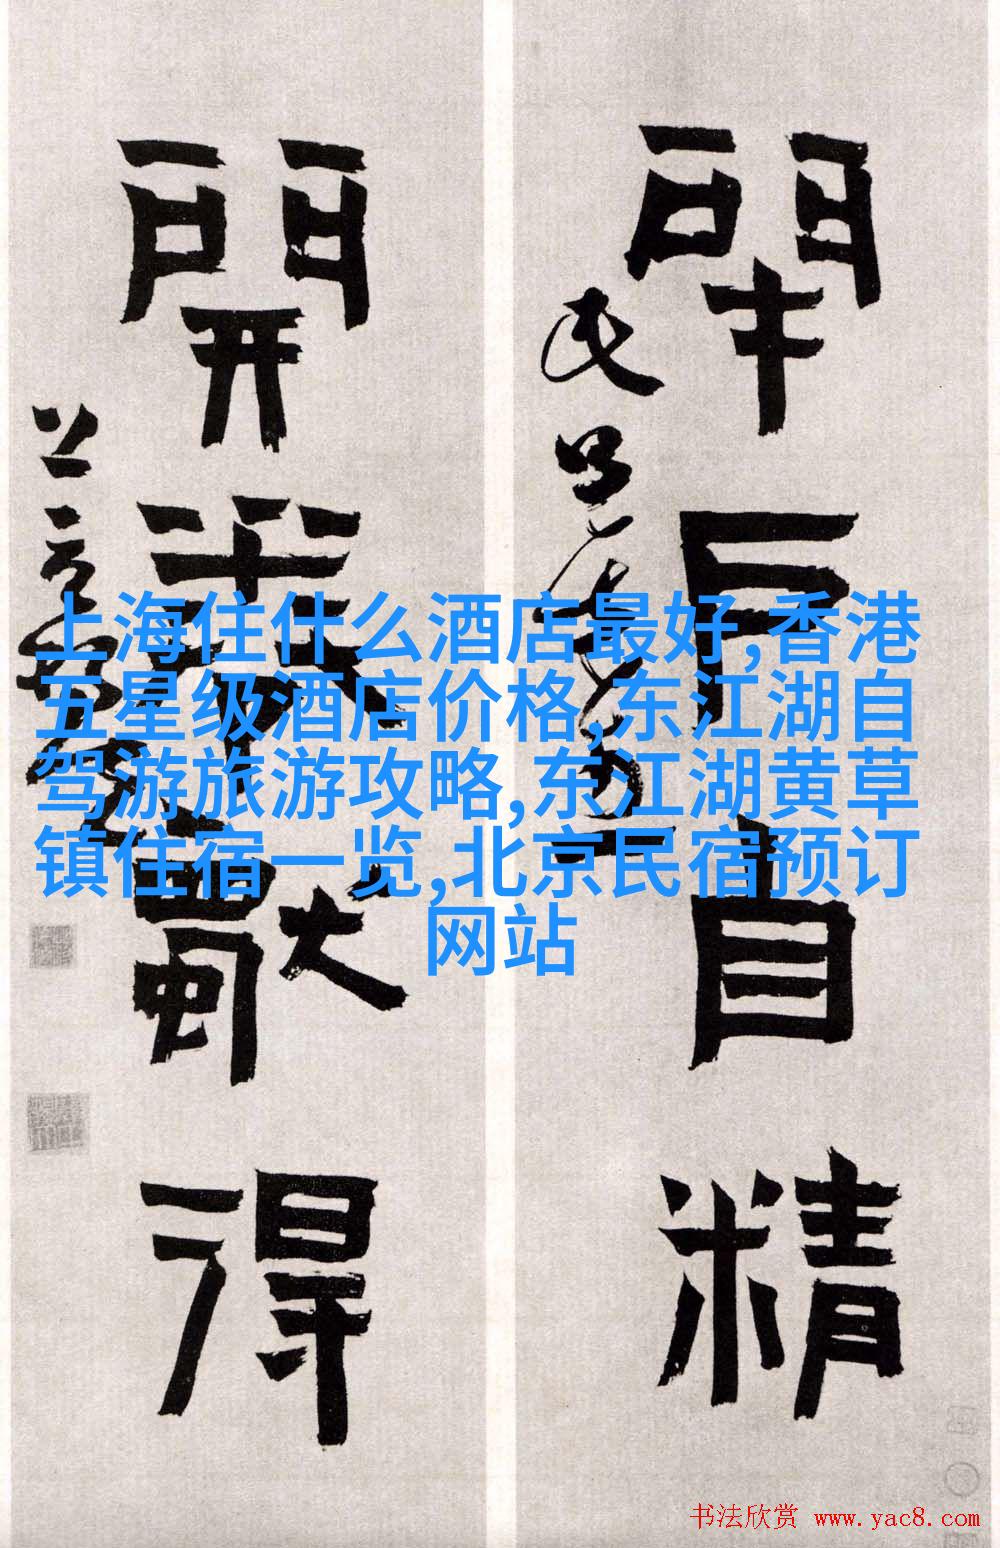 閉戶自精
開卷獨得
上海住什么酒店最好,香港
五星级酒店价格,东江湖自
驾游旅游攻略,东江湖黄草
镇住宿一览,北京民宿预订
网站
书法欣赏 www.yac8.com